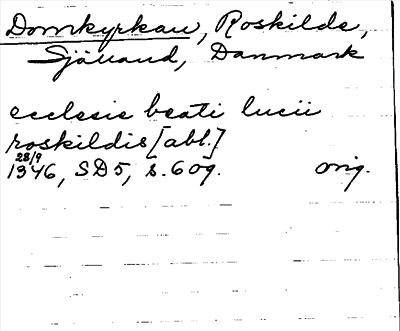 Domkyrkan, Roskilde,
Själland, Danmark
ecclesie beati lucii
roskildis [abl.]
28/9
1346, SD5, s. 609. orig.